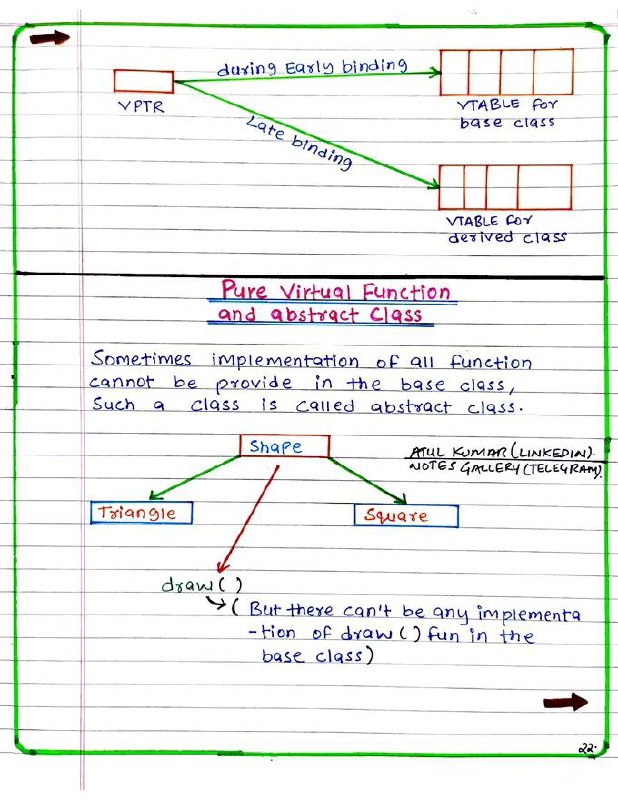 during Early binding
VPTR
VTABLE for
base class
Late binding
VTABLE for
derived class
Pure Virtual Function
and abstract Class
Sometimes implementation of all function
cannot be provide in the base class,
Such a class is called abstract class.
Shape
ATUL KUMAR (LINKEDIN).
NOTES GALLERY (TELEGRAM).
Triangle
Square
draw()
( But there can't be any implementa
-tion of draw() fun in the
base class)
22.